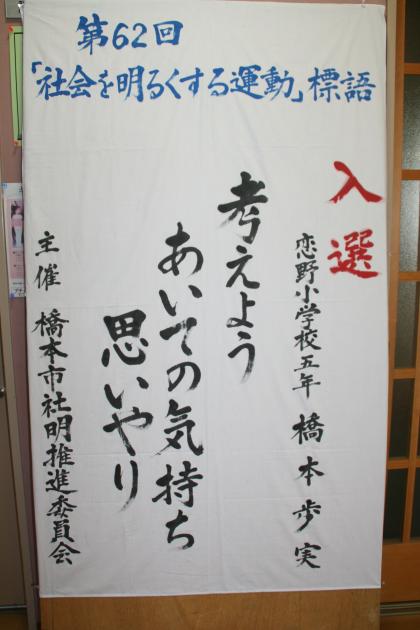 第62回
「社会を明るくする運動」標語
入選
恋野小学校五年 橋本歩実
考えよう
あいての気持ち
思いやり
主催 橋本市社明推進委員会